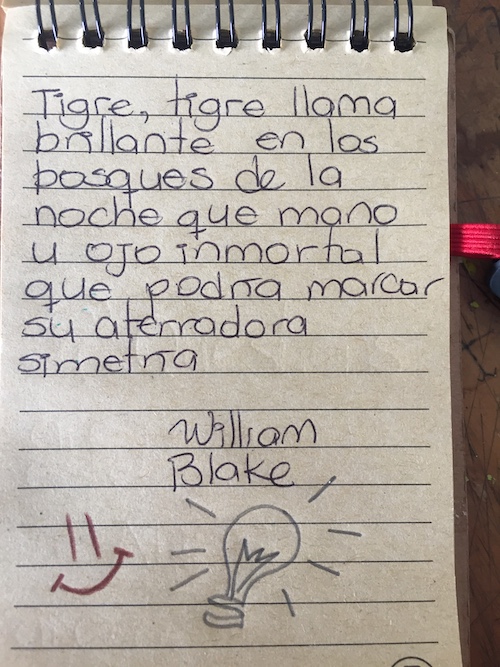 Tigre, tigre llama
brillante en los
bosques de la
noche que mano
u ojo inmortal
que podria marcar
su aterradora
simetria
William
Blake